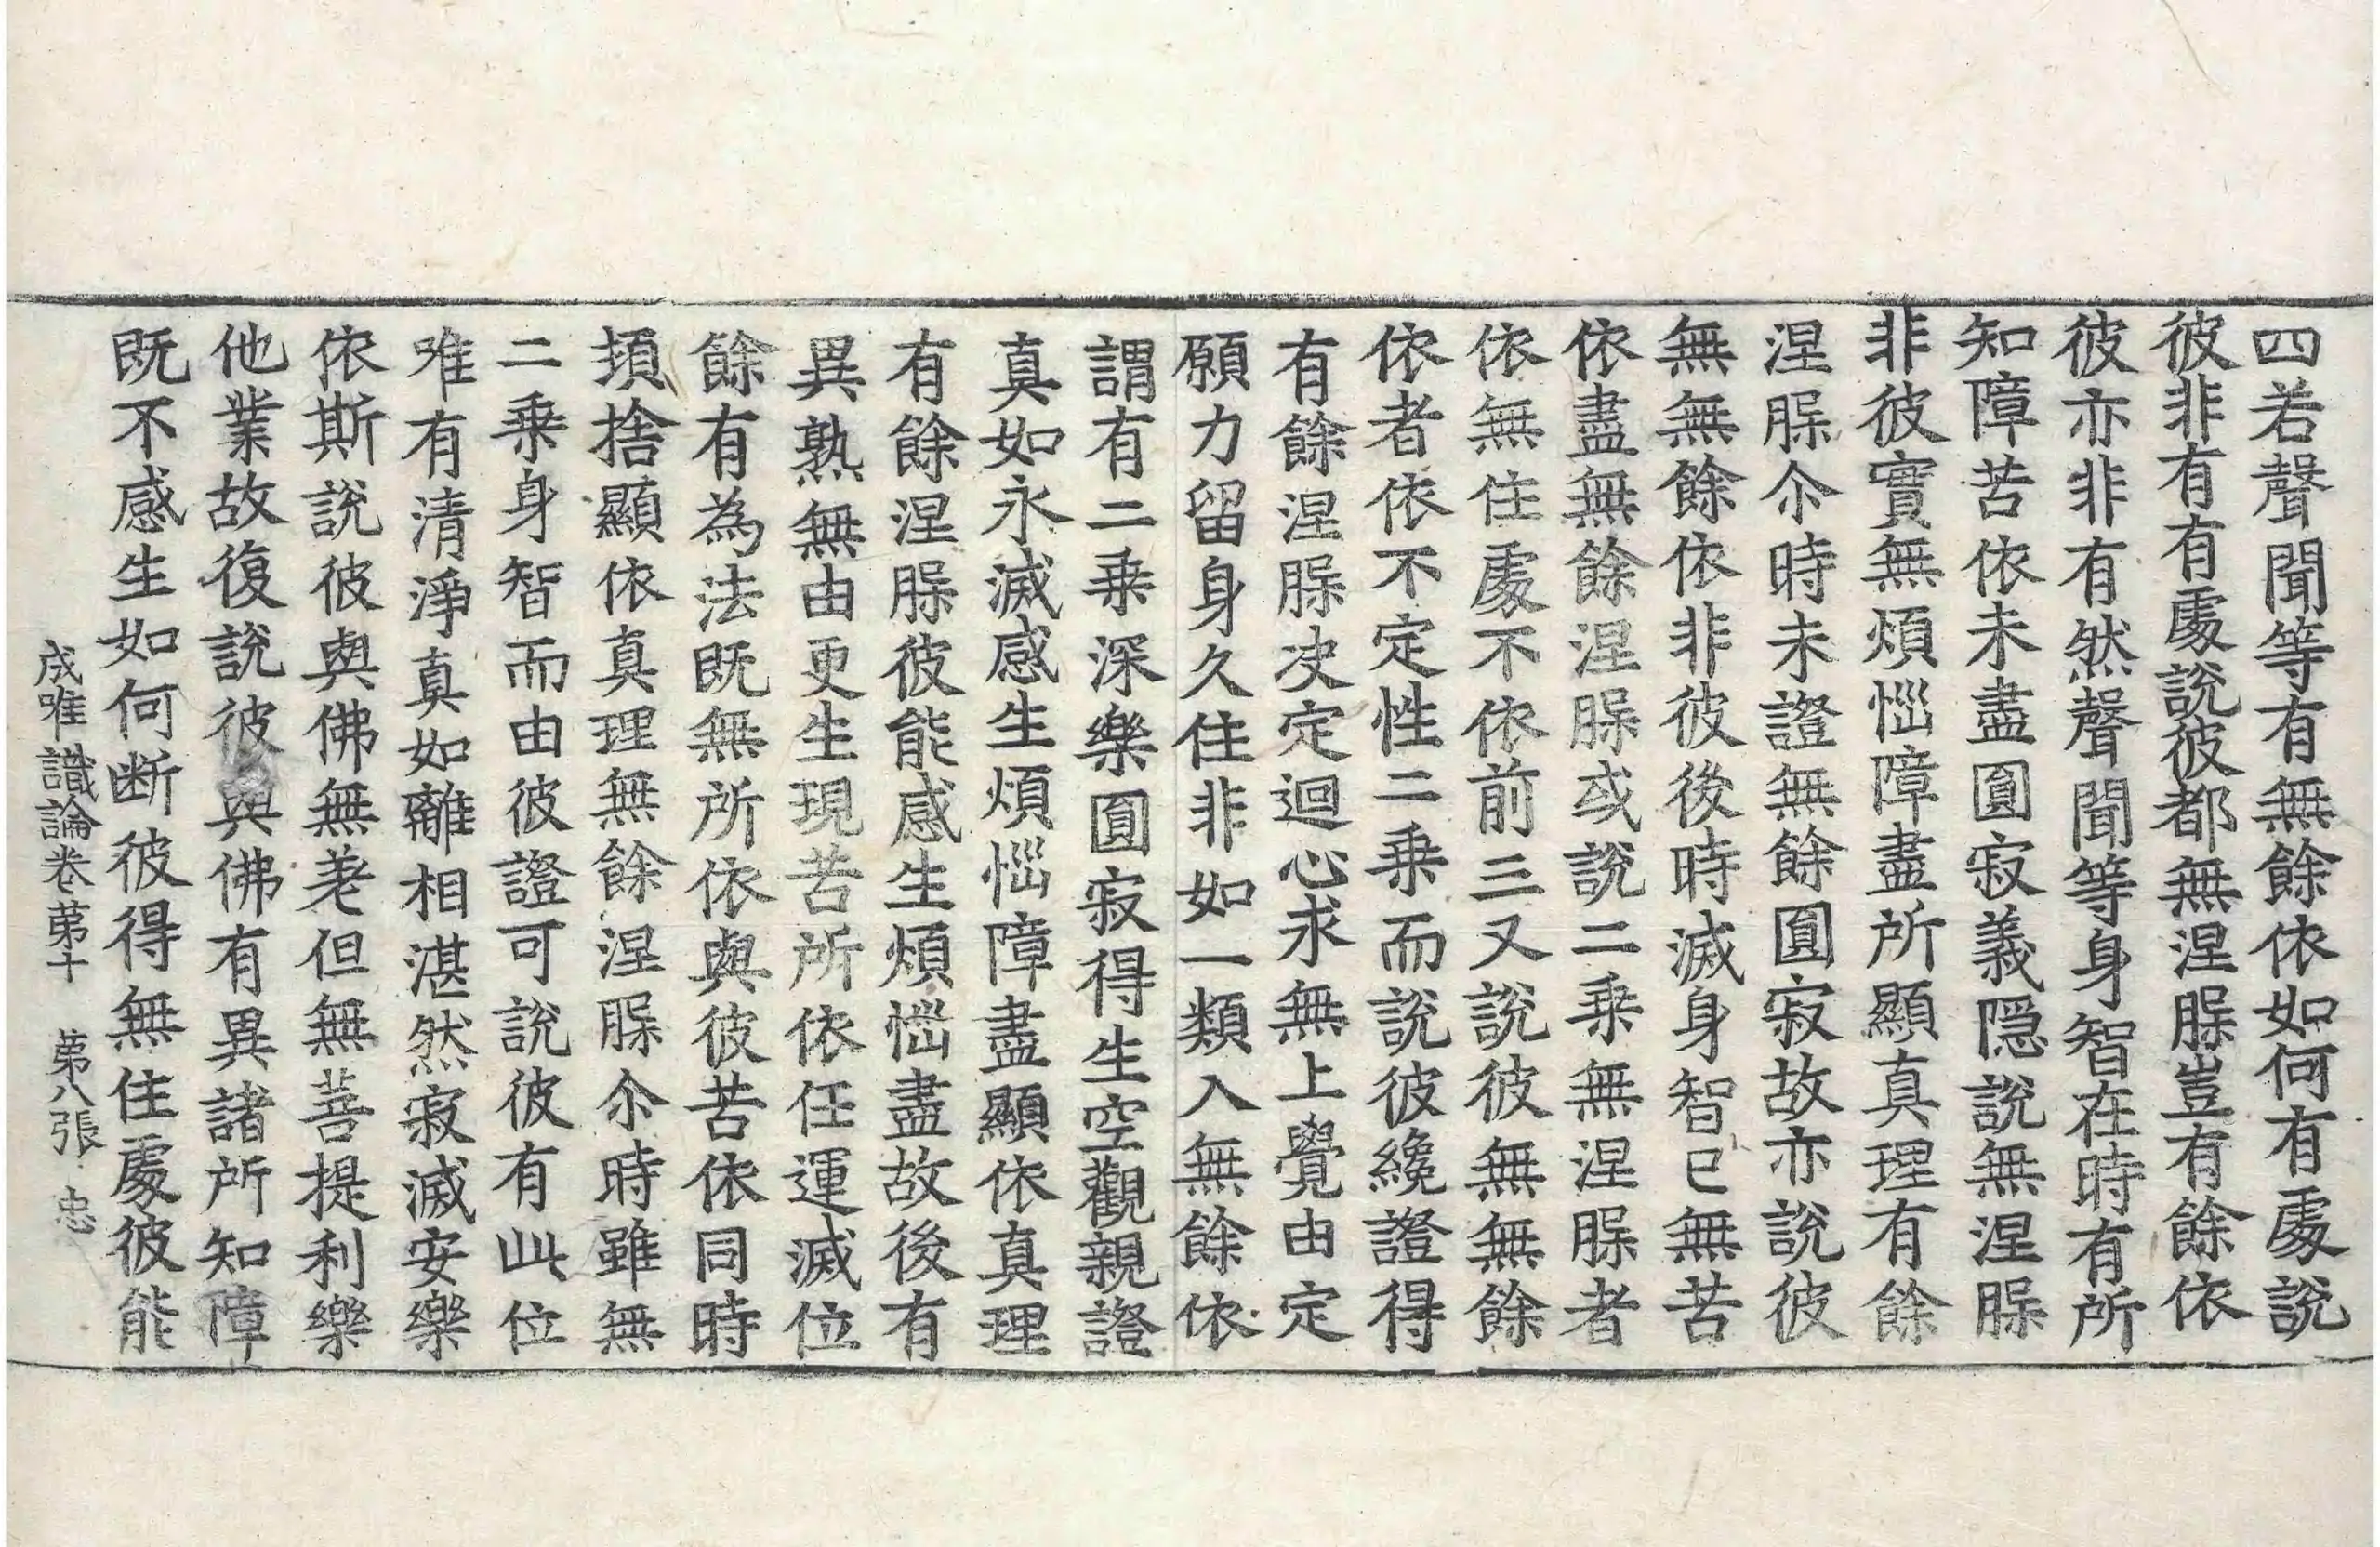 四若聲聞等有無餘依如何有處說
彼非有有處說彼都無涅脲豈有餘依
彼亦非有然聲聞等身智在時有所
知障苦依未盡圓寂義隱說無涅脲
非彼實無煩惱障盡所顯真理有餘
涅脲尒時未證無餘圓寂故亦說彼
無無餘依非彼後時滅身智已無苦
依盡無餘涅脲或說二乗無涅脲者
依無住處不依前三又說彼無無餘
依者依不定性二乗而說彼纔證得
有餘涅脲决定迴心求無上覺由定
願力留身久住非如一類入無餘依
謂有二乗深樂圓寂得生空觀親證
真如永滅感生煩惱障盡顯依真理
有餘涅脲彼能感生煩惱盡故後有
異熟無由更生現苦所依任運滅位
餘有為法既無所依與彼苦依同時
頓捨顯依真理無餘涅脲尒時雖無
二乗身智而由彼證可說彼有此位
唯有清淨真如離相湛然寂滅安樂
依斯說彼與佛無差但無菩提利樂
他業故復說彼與佛有異諸所知障
既不感生如何断彼得無住處彼能
成唯識論卷第十 第八張 忠